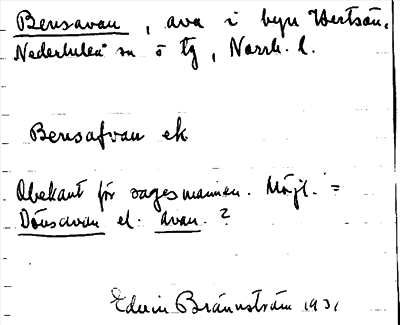 Bensavan, ava i byn Hertsån,
Nederluleå sn ö tg, Norrb. l.
Bensafvan ek
Obekant för sagesmannen. Möjl. =
Dönsavan el. avan. ?
Edvin Brännström 1931